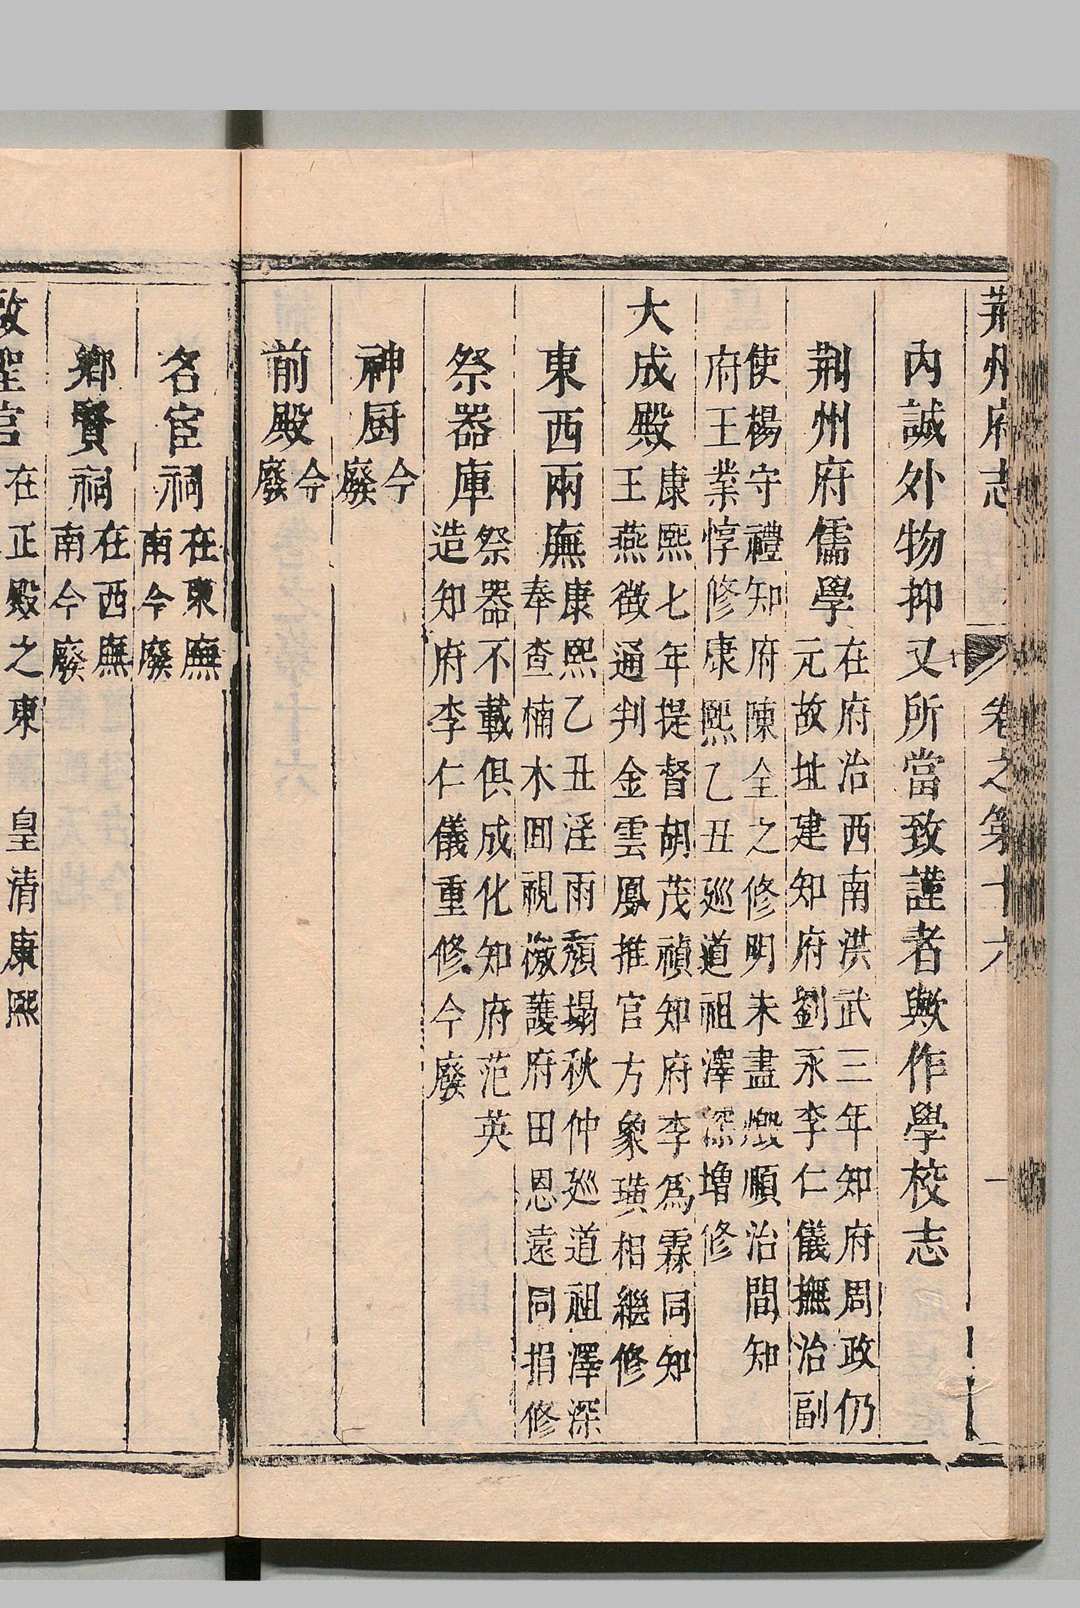 荆州府志　卷之第十六　一
內誠外物抑又所當致謹者歟作學校志
荆州府儒學在府治西南洪武三年知府周政仍
元故址建知府劉永李仁儀撫治副
使楊守禮知府陳全之修明末盡燬順治間知
府王業惇修康熙乙丑巡道祖澤深增修
大成殿康熙七年提督胡茂禎知府李爲霖同知
王燕徵通判金雲鳳推官方象璜相繼修
東西兩廡康熙乙丑淫雨頹塌秋仲巡道祖澤深
奉查楠木囬視檄護府田恩遠同捐修
祭器庫祭器不載俱成化知府范英
造知府李仁儀重修今廢
神厨今
廢
前殿今
廢
名宦祠在東廡
南今廢
鄉賢祠在西廡
南今廢
啟聖宫在正殿之東　皇清康熙